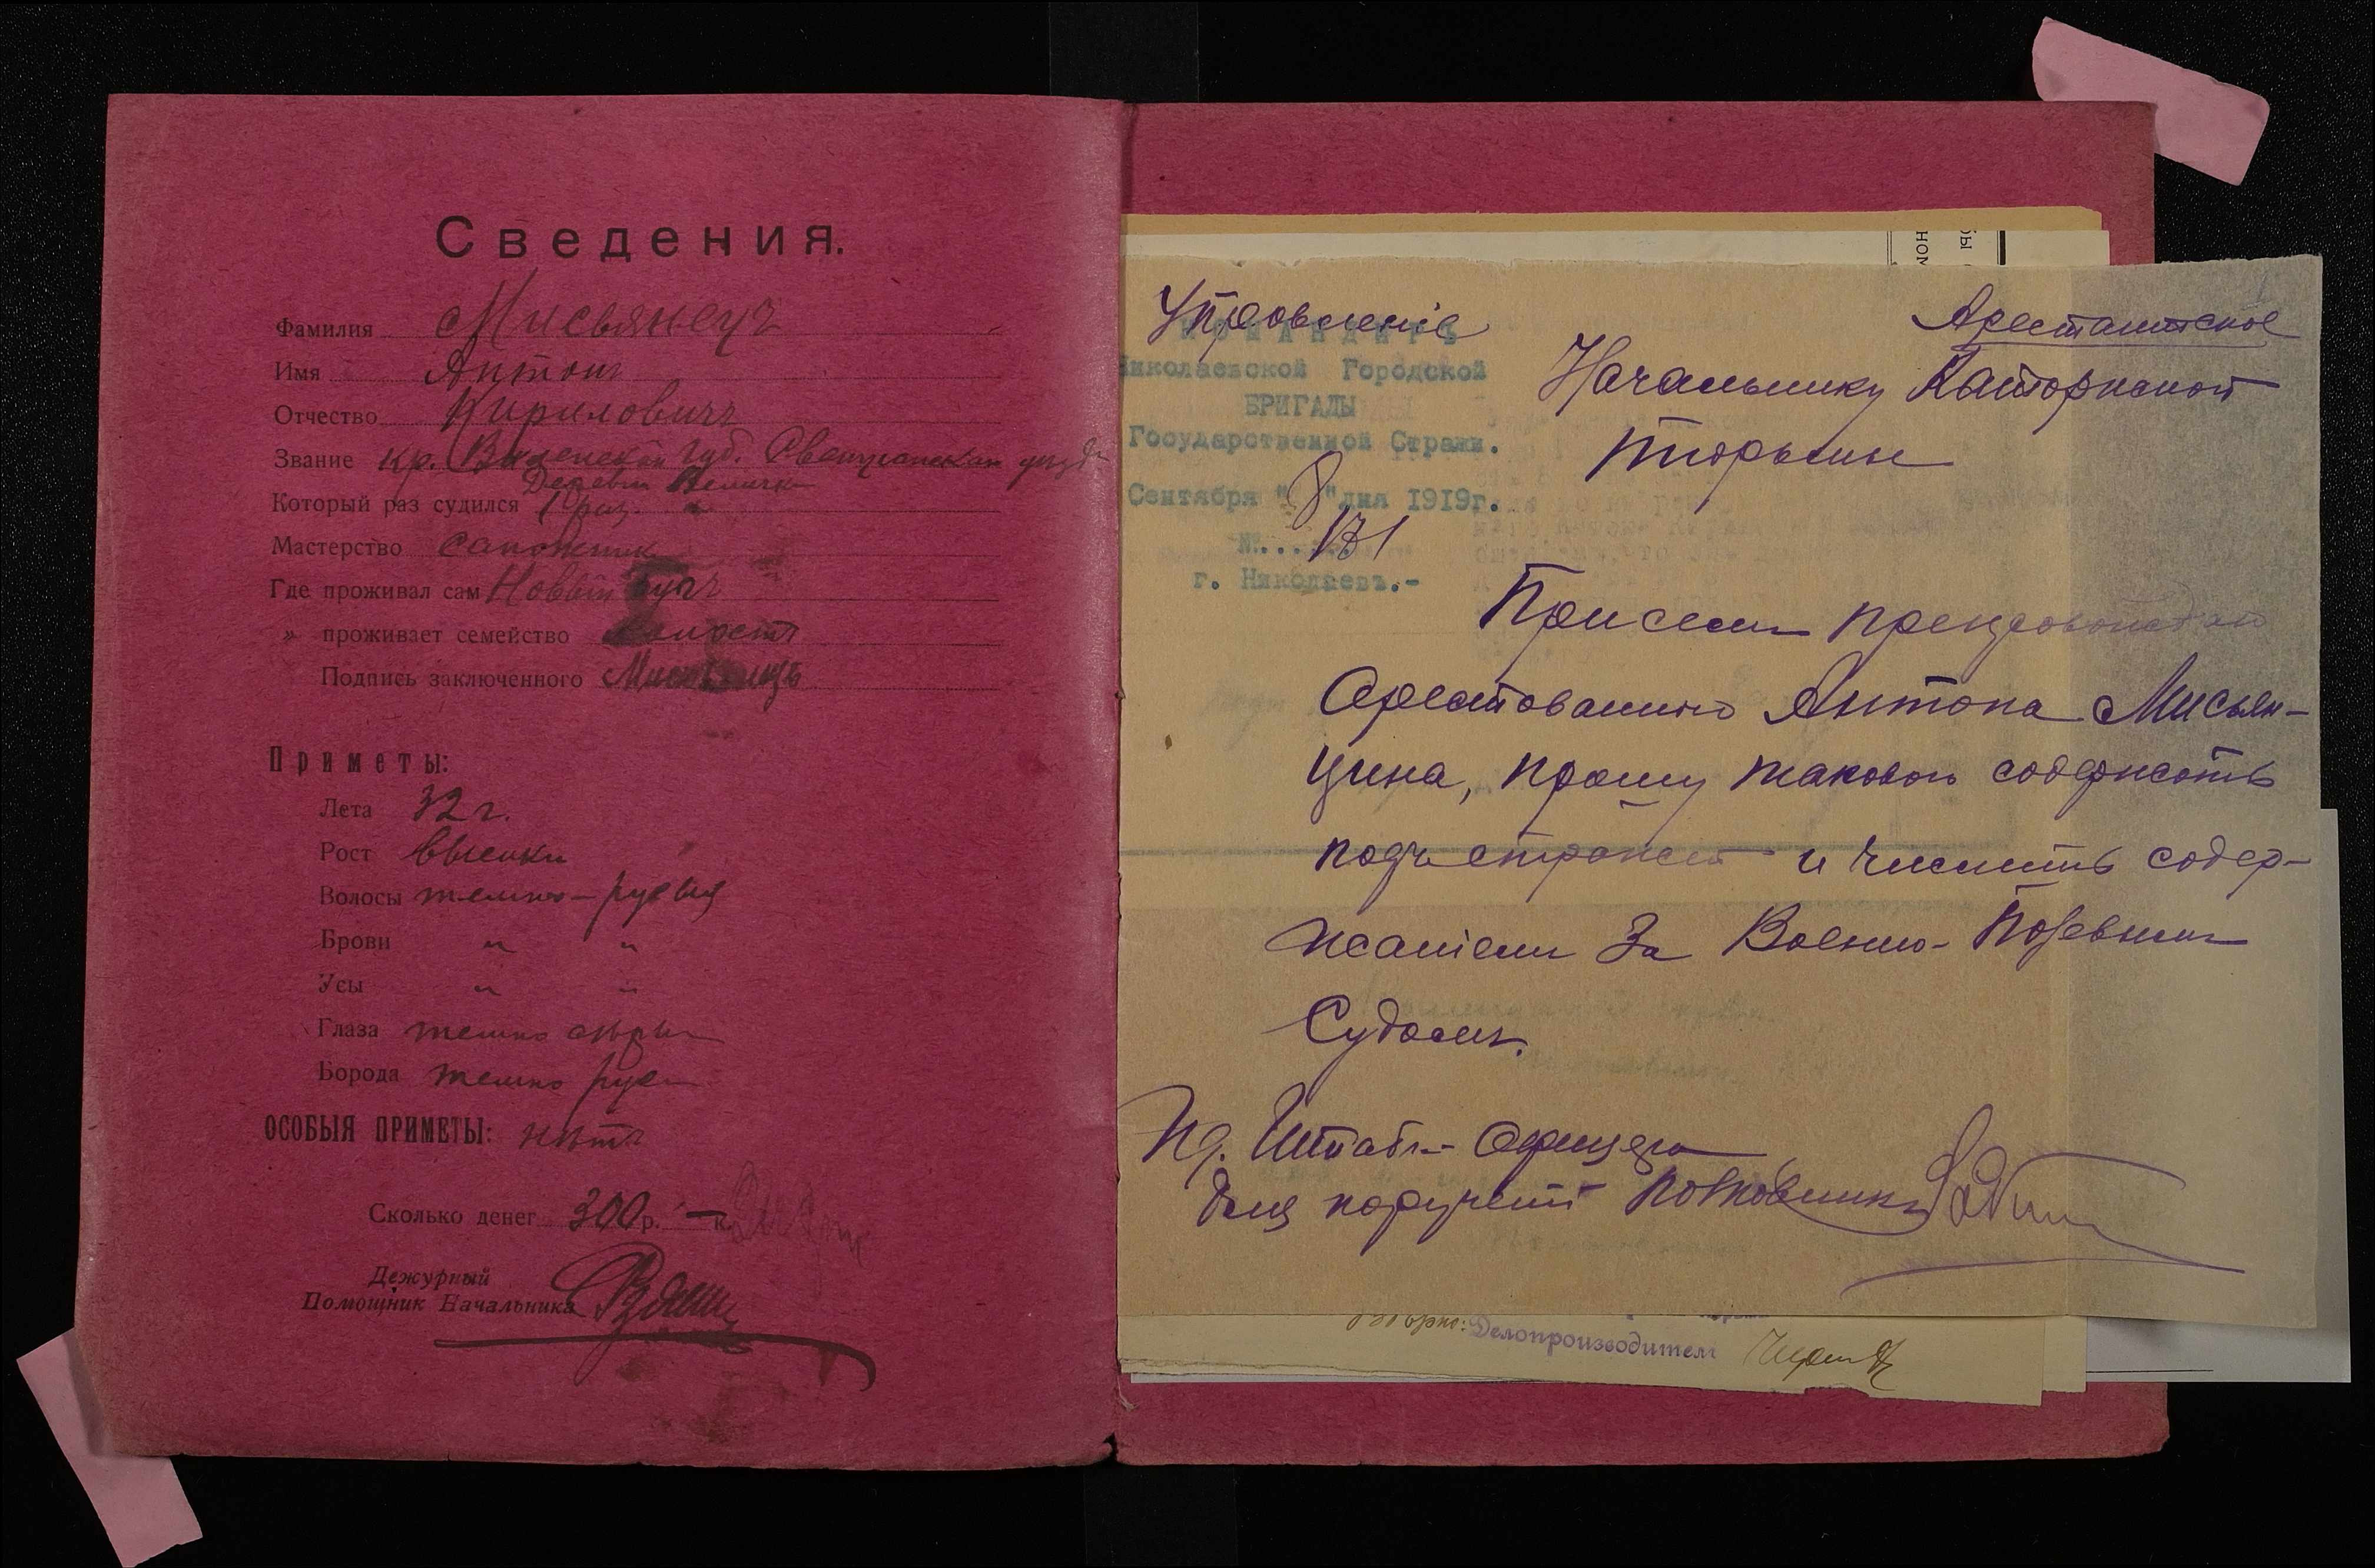 Сведения.
Фамилия Мисьянецъ
Имя Антонъ
Отчество Кириловичъ
Звание кр. Виленской губ. Свенцianской уезда
Деревни
Который раз судился 1 раз.
Мастерство сапожник
Где проживал сам Новый Бугъ
" проживает семейство холостъ
Подпись заключенного
Приметы:
Лета 32 г.
Рост высокий
Волосы темно-русыя
Брови " "
Усы " "
Глаза темно серые
Борода темно рус
ОСОБЫЯ ПРИМЕТЫ: нѣтъ
Сколько денег 300 р. — к.
Дежурный
Помощник Начальника
Управленіе
КОМАНДИРЪ
Николаевской Городской
БРИГАДЫ
Государственной Стражи.
Сентября "8" дня 1919г.
№ 171
г. Николаевъ.-
Арестантское
Начальнику Каторжной
тюрьмы
При семъ препровождаю
арестованного Антона Мисьян-
цина, прошу такового содержать
подъ стражей и числить содер-
жаніемъ за Военно-Полевымъ
Судомъ.
Ид. Штабъ-Офицера
для поручений Полковникъ
Делопроизводитель